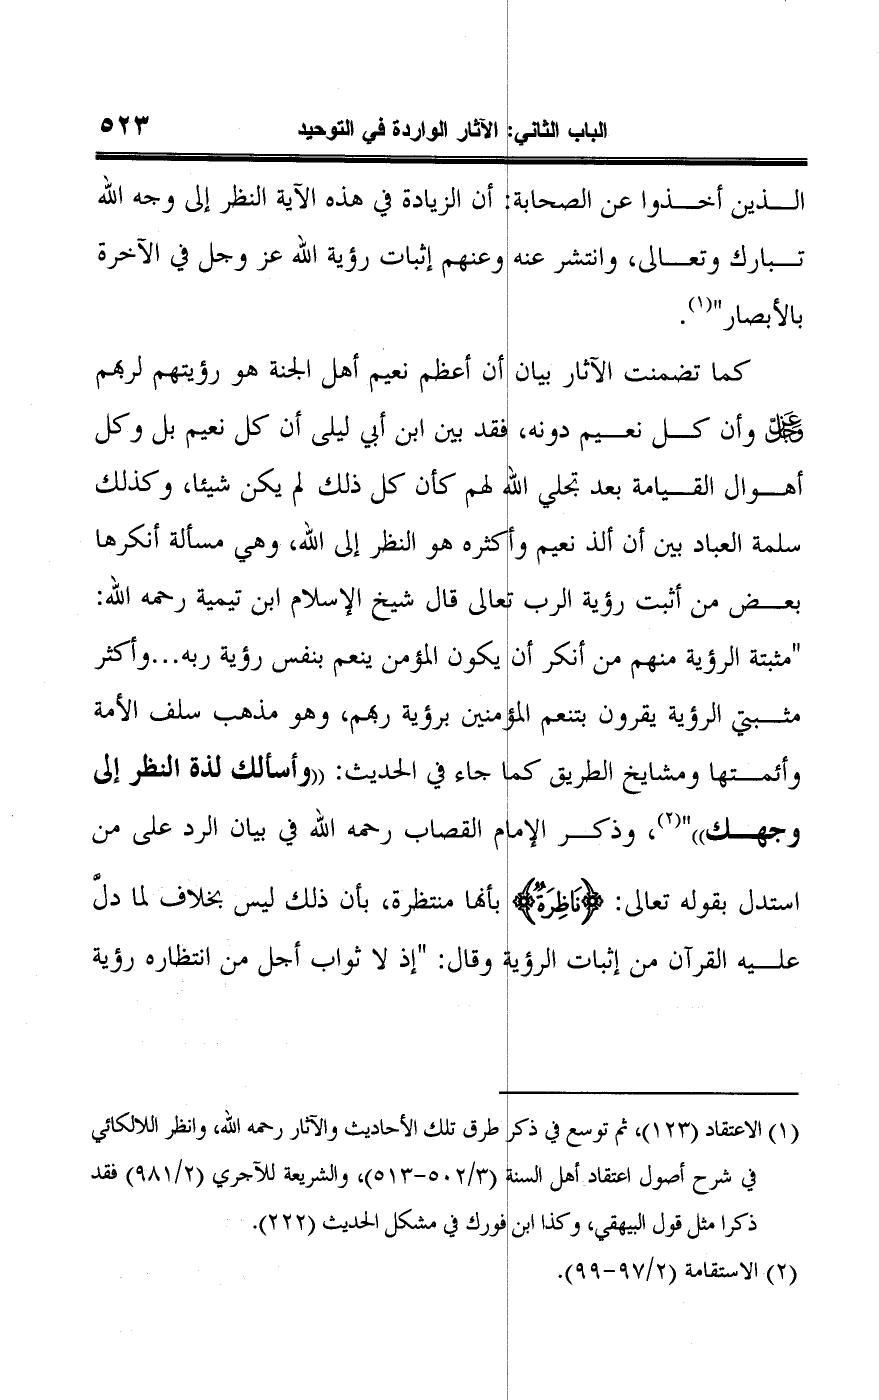 الباب الثاني: الآثار الواردة في التوحيد ٥٢٣
الـــذين أخـــذوا عن الصحابة: أن الزيادة في هذه الآية النظر إلى وجه الله
تـــبارك وتعـــالى، وانتشر عنه وعنهم إثبات رؤية الله عز وجل في الآخرة
بالأبصار"(١).
كما تضمنت الآثار بيان أن أعظم نعيم أهل الجنة هو رؤيتهم لربهم
عزوجل وأن كـــل نعـــيم دونه، فقد بين ابن أبي ليلى أن كل نعيم بل وكل
أهـــوال القـــيامة بعد تجلي الله لهم كأن كل ذلك لم يكن شيئا، وكذلك
سلمة العباد بين أن ألذ نعيم وأكثره هو النظر إلى الله، وهي مسألة أنكرها
بعـــض من أثبت رؤية الرب تعالى قال شيخ الإسلام ابن تيمية رحمه الله:
"مثبتة الرؤية منهم من أنكر أن يكون المؤمن ينعم بنفس رؤية ربه...وأكثر
مثـــبتي الرؤية يقرون بتنعم المؤمنين برؤية ربهم، وهو مذهب سلف الأمة
وأئمـــتها ومشايخ الطريق كما جاء في الحديث: ((وأسألك لذة النظر إلى
وجهـــك))"(٢)، وذكـــر الإمام القصاب رحمه الله في بيان الرد على من
استدل بقوله تعالى: ﴿نَاظِرَةٌ﴾ بأنها منتظرة، بأن ذلك ليس بخلاف لما دلَّ
علـــيه القرآن من إثبات الرؤية وقال: "إذ لا ثواب أجل من انتظاره رؤية
(١) الاعتقاد (١٢٣)، ثم توسع في ذكر طرق تلك الأحاديث والآثار رحمه الله، وانظر اللالكائي
في شرح أصول اعتقاد أهل السنة (٥٠٢/٣-٥١٣)، والشريعة للآجري (٩٨١/٢) فقد
ذكرا مثل قول البيهقي، وكذا ابن فورك في مشكل الحديث (٢٢٢).
(٢) الاستقامة (٩٧/٢-٩٩).